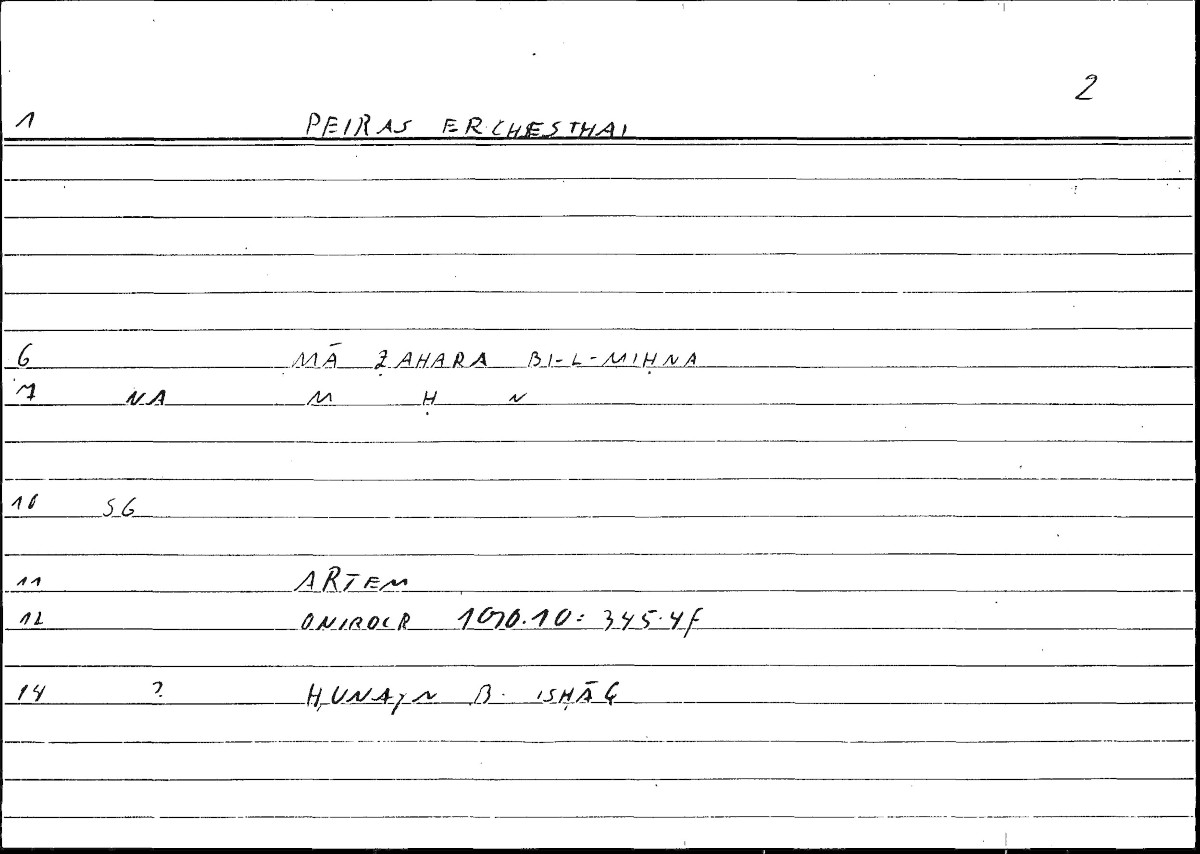 2
1 PEIRAS ERCHESTHAI
6 MĀ ẒAHARA BI-L-MIḤNA
7 NA M Ḥ N
10 SG
11 ARTEM
12 ONIROCR 1070.10: 345.4f
14 ? ḤUNAYN B. ISḤĀQ